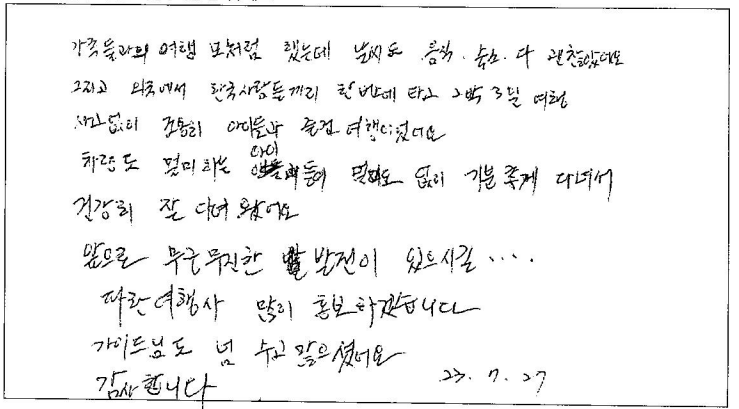 가족들과의 여행 모처럼 했는데 날씨도 음식. 숙소. 다 괜찮았어요
그리고 외국에서 한국사람들끼리 한번에 타고 2박 3일 여행
사고없이 조용히 아이들과 즐건 여행이였어요
차량도 멀미하는 아이들이 멀미도 없이 기분좋게 다녀서
건강히 잘 다녀왔어요
앞으로 무궁무진한 발전이 있으시길....
따란여행사 많이 홍보하겠습니다
가이드님도 넘 수고 많으셨어요
감사합니다 23. 7. 27